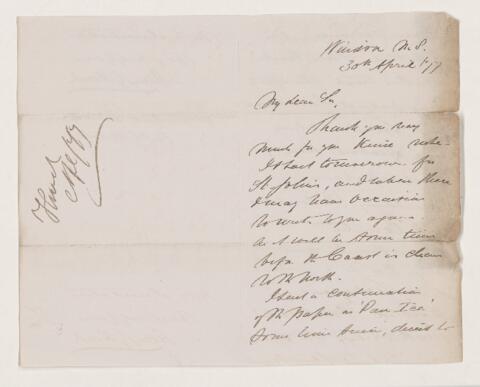 Windsor N.S.
30th April /77
My dear Sir,
Thank you very
much for your kind note.
I start tomorrow for
St. Johns, and when there
I may have occasion
to write to you again.
As it will be some time
before the Coast is clear
to the North.
I sent a continuation
of the Paper on 'Pan Ice'
some time since, direct to